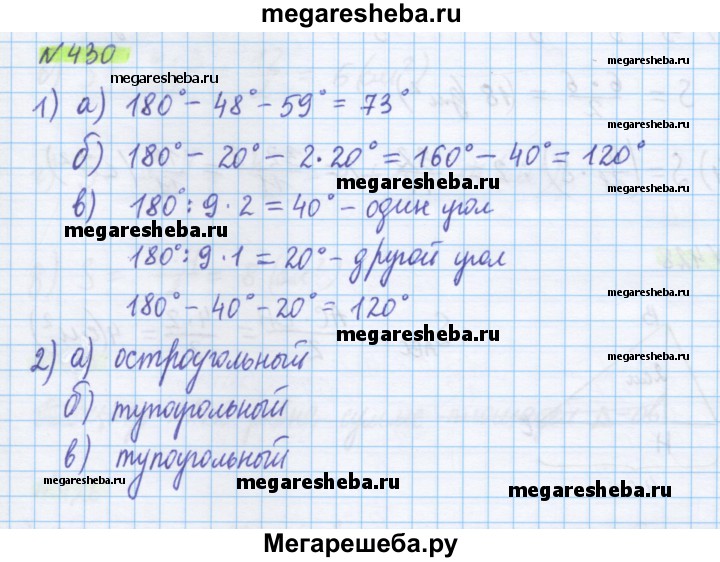 megaresheba.ru
№430
megaresheba.ru
1) а) 180° - 48° - 59° = 73°
б) 180° - 20° - 2·20° = 160° - 40° = 120°
megaresheba.ru
в) 180° : 9 · 2 = 40° - один угол
megaresheba.ru
180° : 9 · 1 = 20° - другой угол
megaresheba.ru
180° - 40° - 20° = 120°
megaresheba.ru
2) а) остроугольный
б) тупоугольный
в) тупоугольный
megaresheba.ru megaresheba.ru megaresheba.ru
Мегарешеба.ру